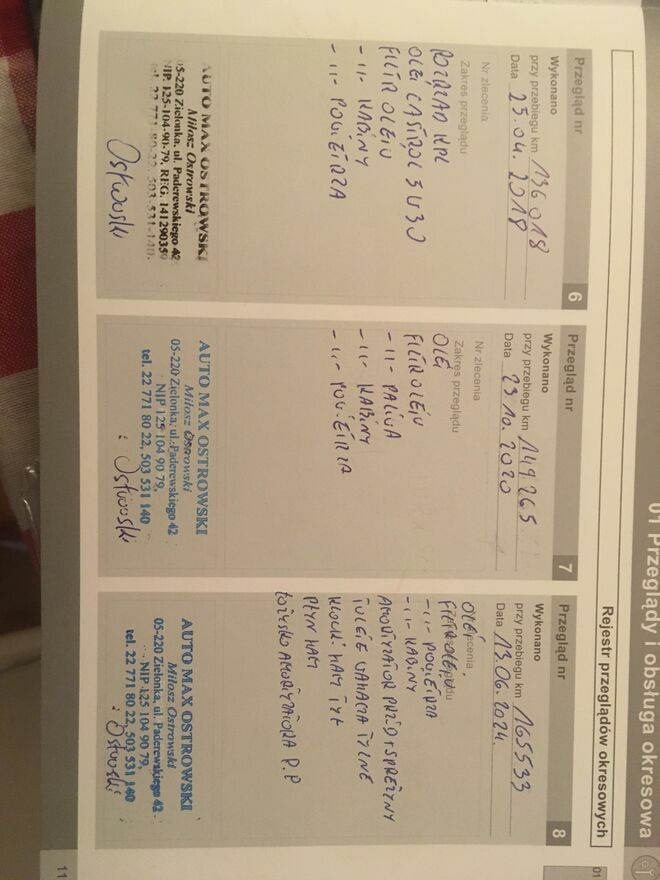 01 Przeglądy i obsługa okresowa
Rejestr przeglądów okresowych
01
Przegląd nr 6
Wykonano
przy przebiegu km 136018
Data 25.04.2018
Nr zlecenia
Zakres przeglądu
ROZRZĄD KPL
OLEJ CASTROL 5W30
FILTR OLEJU
-11- KABINY
-11- POWIETRZA
AUTO MAX OSTROWSKI
Miłosz Ostrowski
05-220 Zielonka, ul. Paderewskiego 42
NIP. 125-104-90-79, REG. 141290359
tel. 22 771 80 22, 503-531-140.
Ostrowski
Przegląd nr 7
Wykonano
przy przebiegu km 149265
Data 29 10. 2020
Nr zlecenia
Zakres przeglądu
OLEJ
FILTR OLEJU
-11- PALIWA
-11- KABINY
-11- POWIETRZA
AUTO MAX OSTROWSKI
Miłosz Ostrowski
05-220 Zielonka, ul. Paderewskiego 42
NIP 125 104 90 79,
tel. 22 771 80 22, 503 531 140
Ostrowski
Przegląd nr 8
Wykonano
przy przebiegu km 165533
Data 13.06.2024.
OLEJ
FILTR OLEJU
-11- POWIETRZA
-11- KABINY
AMORTYZATOR PRZÓD + SPRĘŻYNY
TULEJE WAHACZA TYLNE
KLOCKI HAM TYŁ
PŁYN HAM
ŁOŻYSKO AMORTYZATORA P.P
AUTO MAX OSTROWSKI
Miłosz Ostrowski
05-220 Zielonka, ul. Paderewskiego 42
NIP 125 104 90 79,
tel. 22 771 80 22, 503 531 140
Ostrowski
11